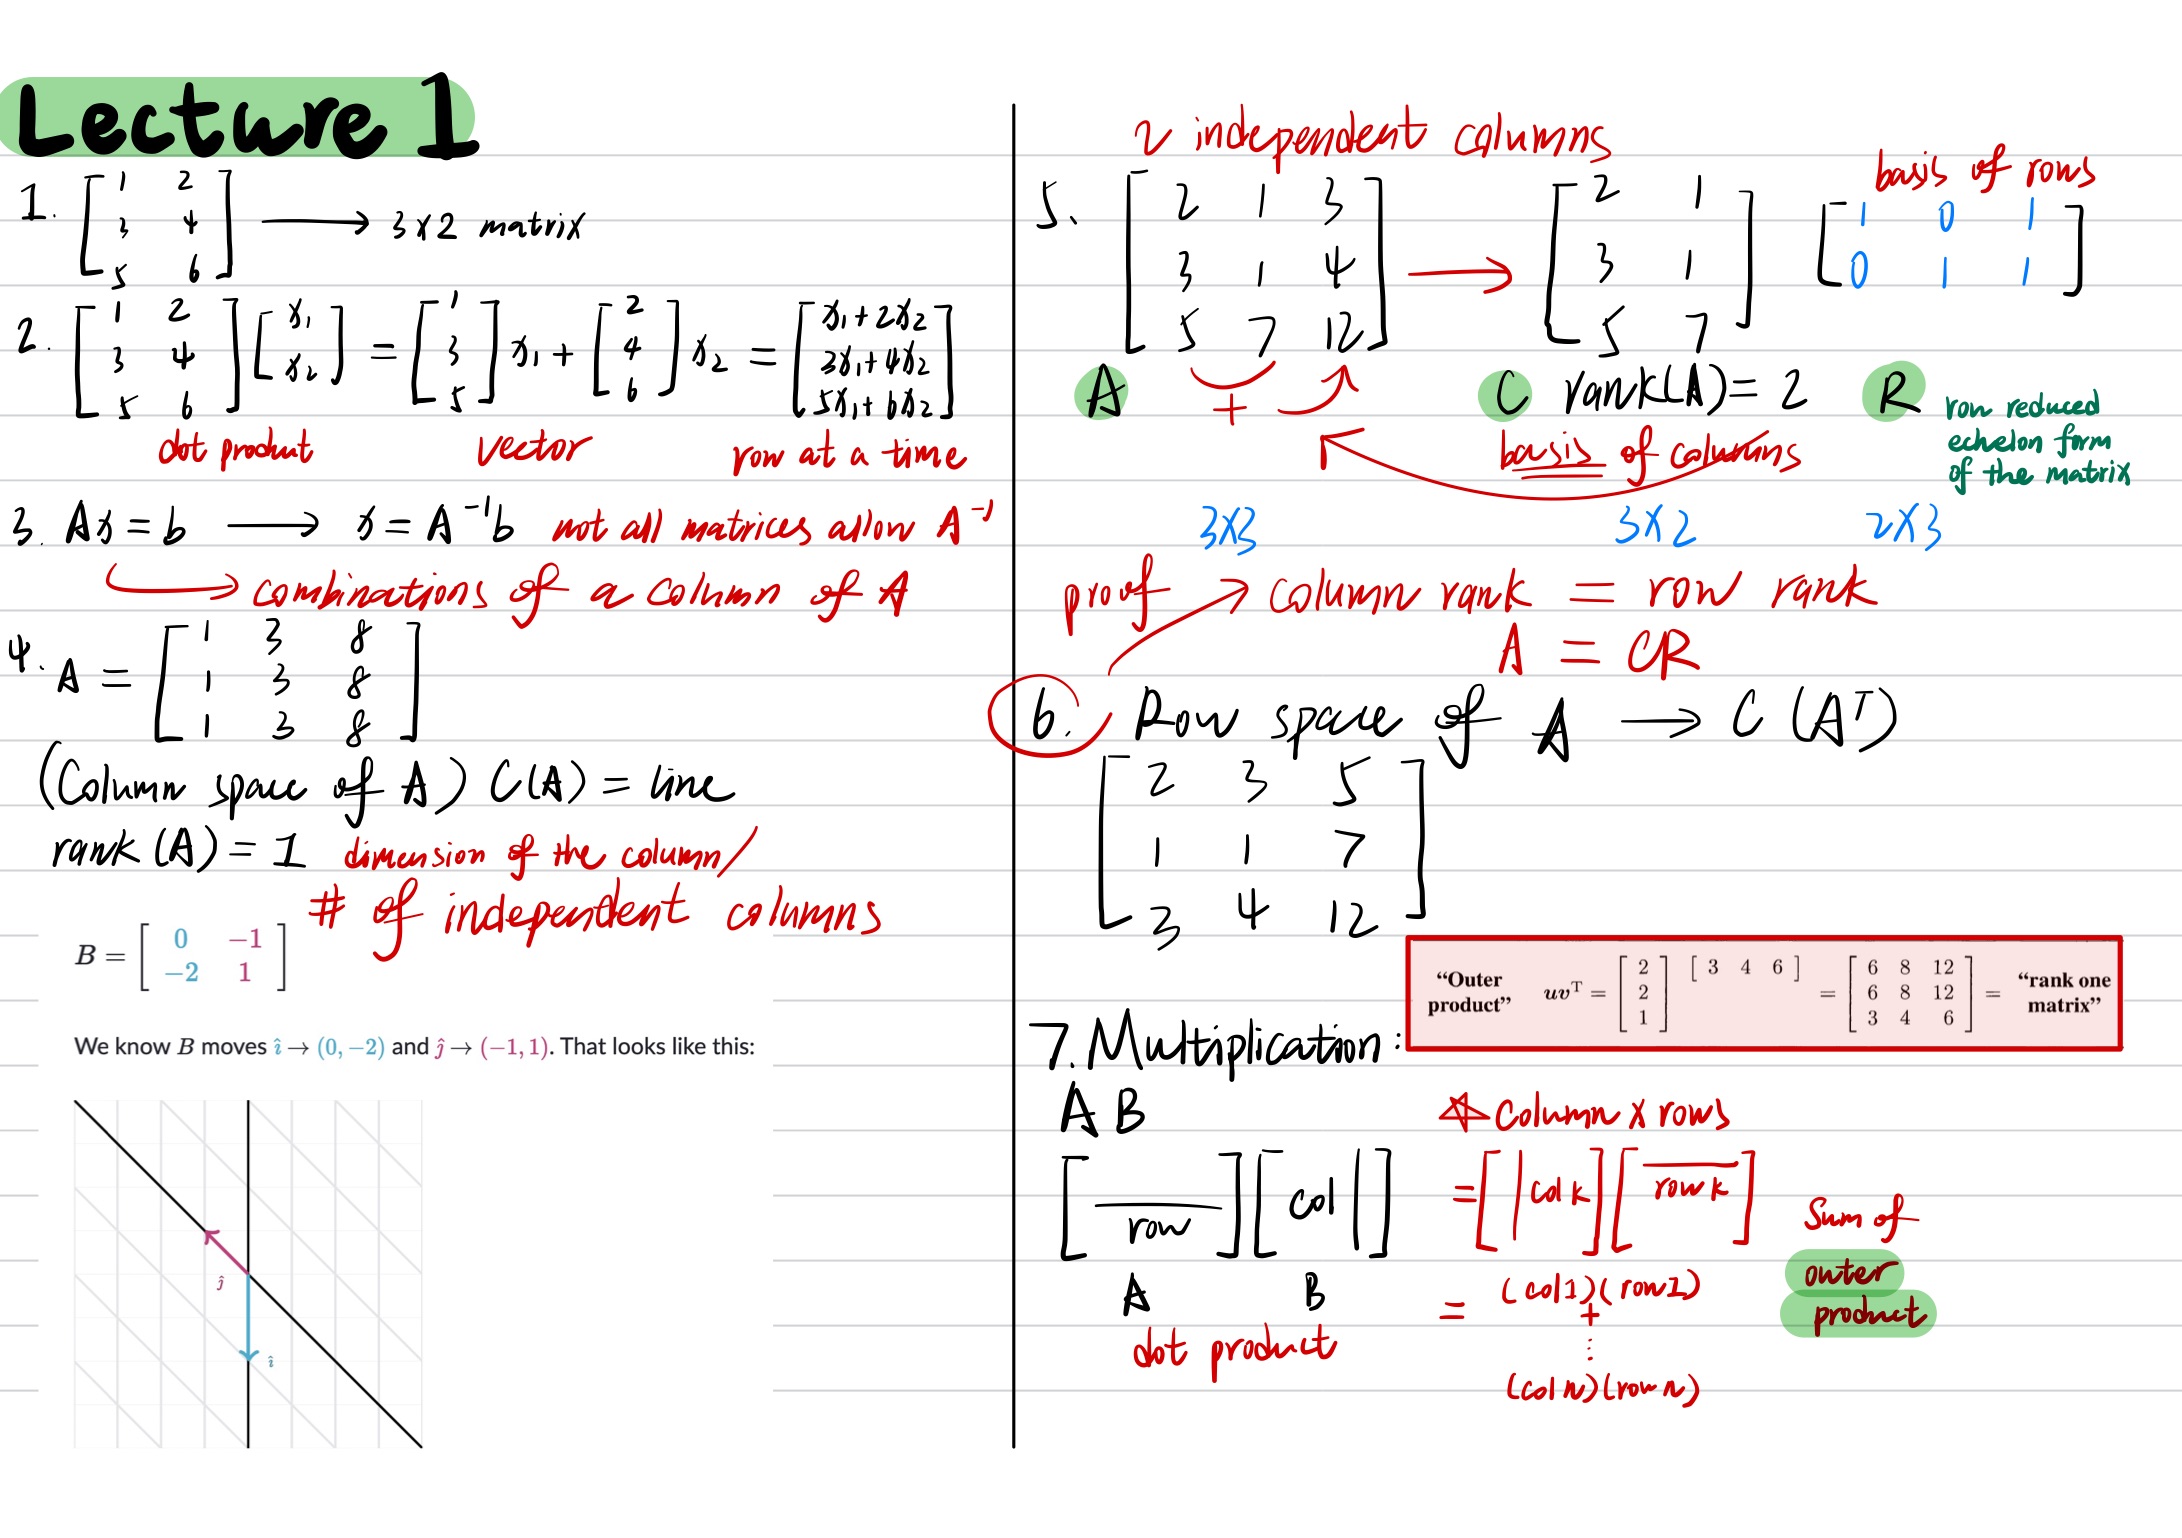 Lecture 1
1. [ 1 2
3 4
5 6 ] ⟶ 3×2 matrix
2. [ 1 2
3 4
5 6 ] [ x₁
x₂ ] = [ 1
3
5 ] x₁ + [ 2
4
6 ] x₂ = [ x₁+2x₂
3x₁+4x₂
5x₁+6x₂ ]
dot product vector row at a time
3. Ax = b ⟶ x = A⁻¹b not all matrices allow A⁻¹
combinations of a column of A
4. A = [ 1 3 8
1 3 8
1 3 8 ]
(Column space of A) C(A) = line
rank(A) = 1 dimension of the column/
# of independent columns
B = [ 0 −1
−2 1 ]
We know B moves î → (0, −2) and ĵ → (−1, 1). That looks like this:
ĵ
î
2 independent columns
basis of rows
5. [ 2 1 3
3 1 4
5 7 12 ] → [ 2 1
3 1
5 7 ] [ 1 0 1
0 1 1 ]
A + C rank(A) = 2 R row reduced
echelon form
of the matrix
basis of columns
3×3 3×2 2×3
proof → column rank = row rank
A = CR
6. Row space of A ⟶ C(Aᵀ)
[ 2 3 5
1 1 7
3 4 12 ]
“Outer product” uvᵀ = [ 2
2
1 ] [ 3 4 6 ] = [ 6 8 12
6 8 12
3 4 6 ] = “rank one matrix”
7. Multiplication:
A B
☆ Column × rows
[ row ] [ col | ] = [ | col k ] [ row k ]
A B
dot product
= (col 1)(row 1)
+
⋮
(col n)(row n)
Sum of
outer
product